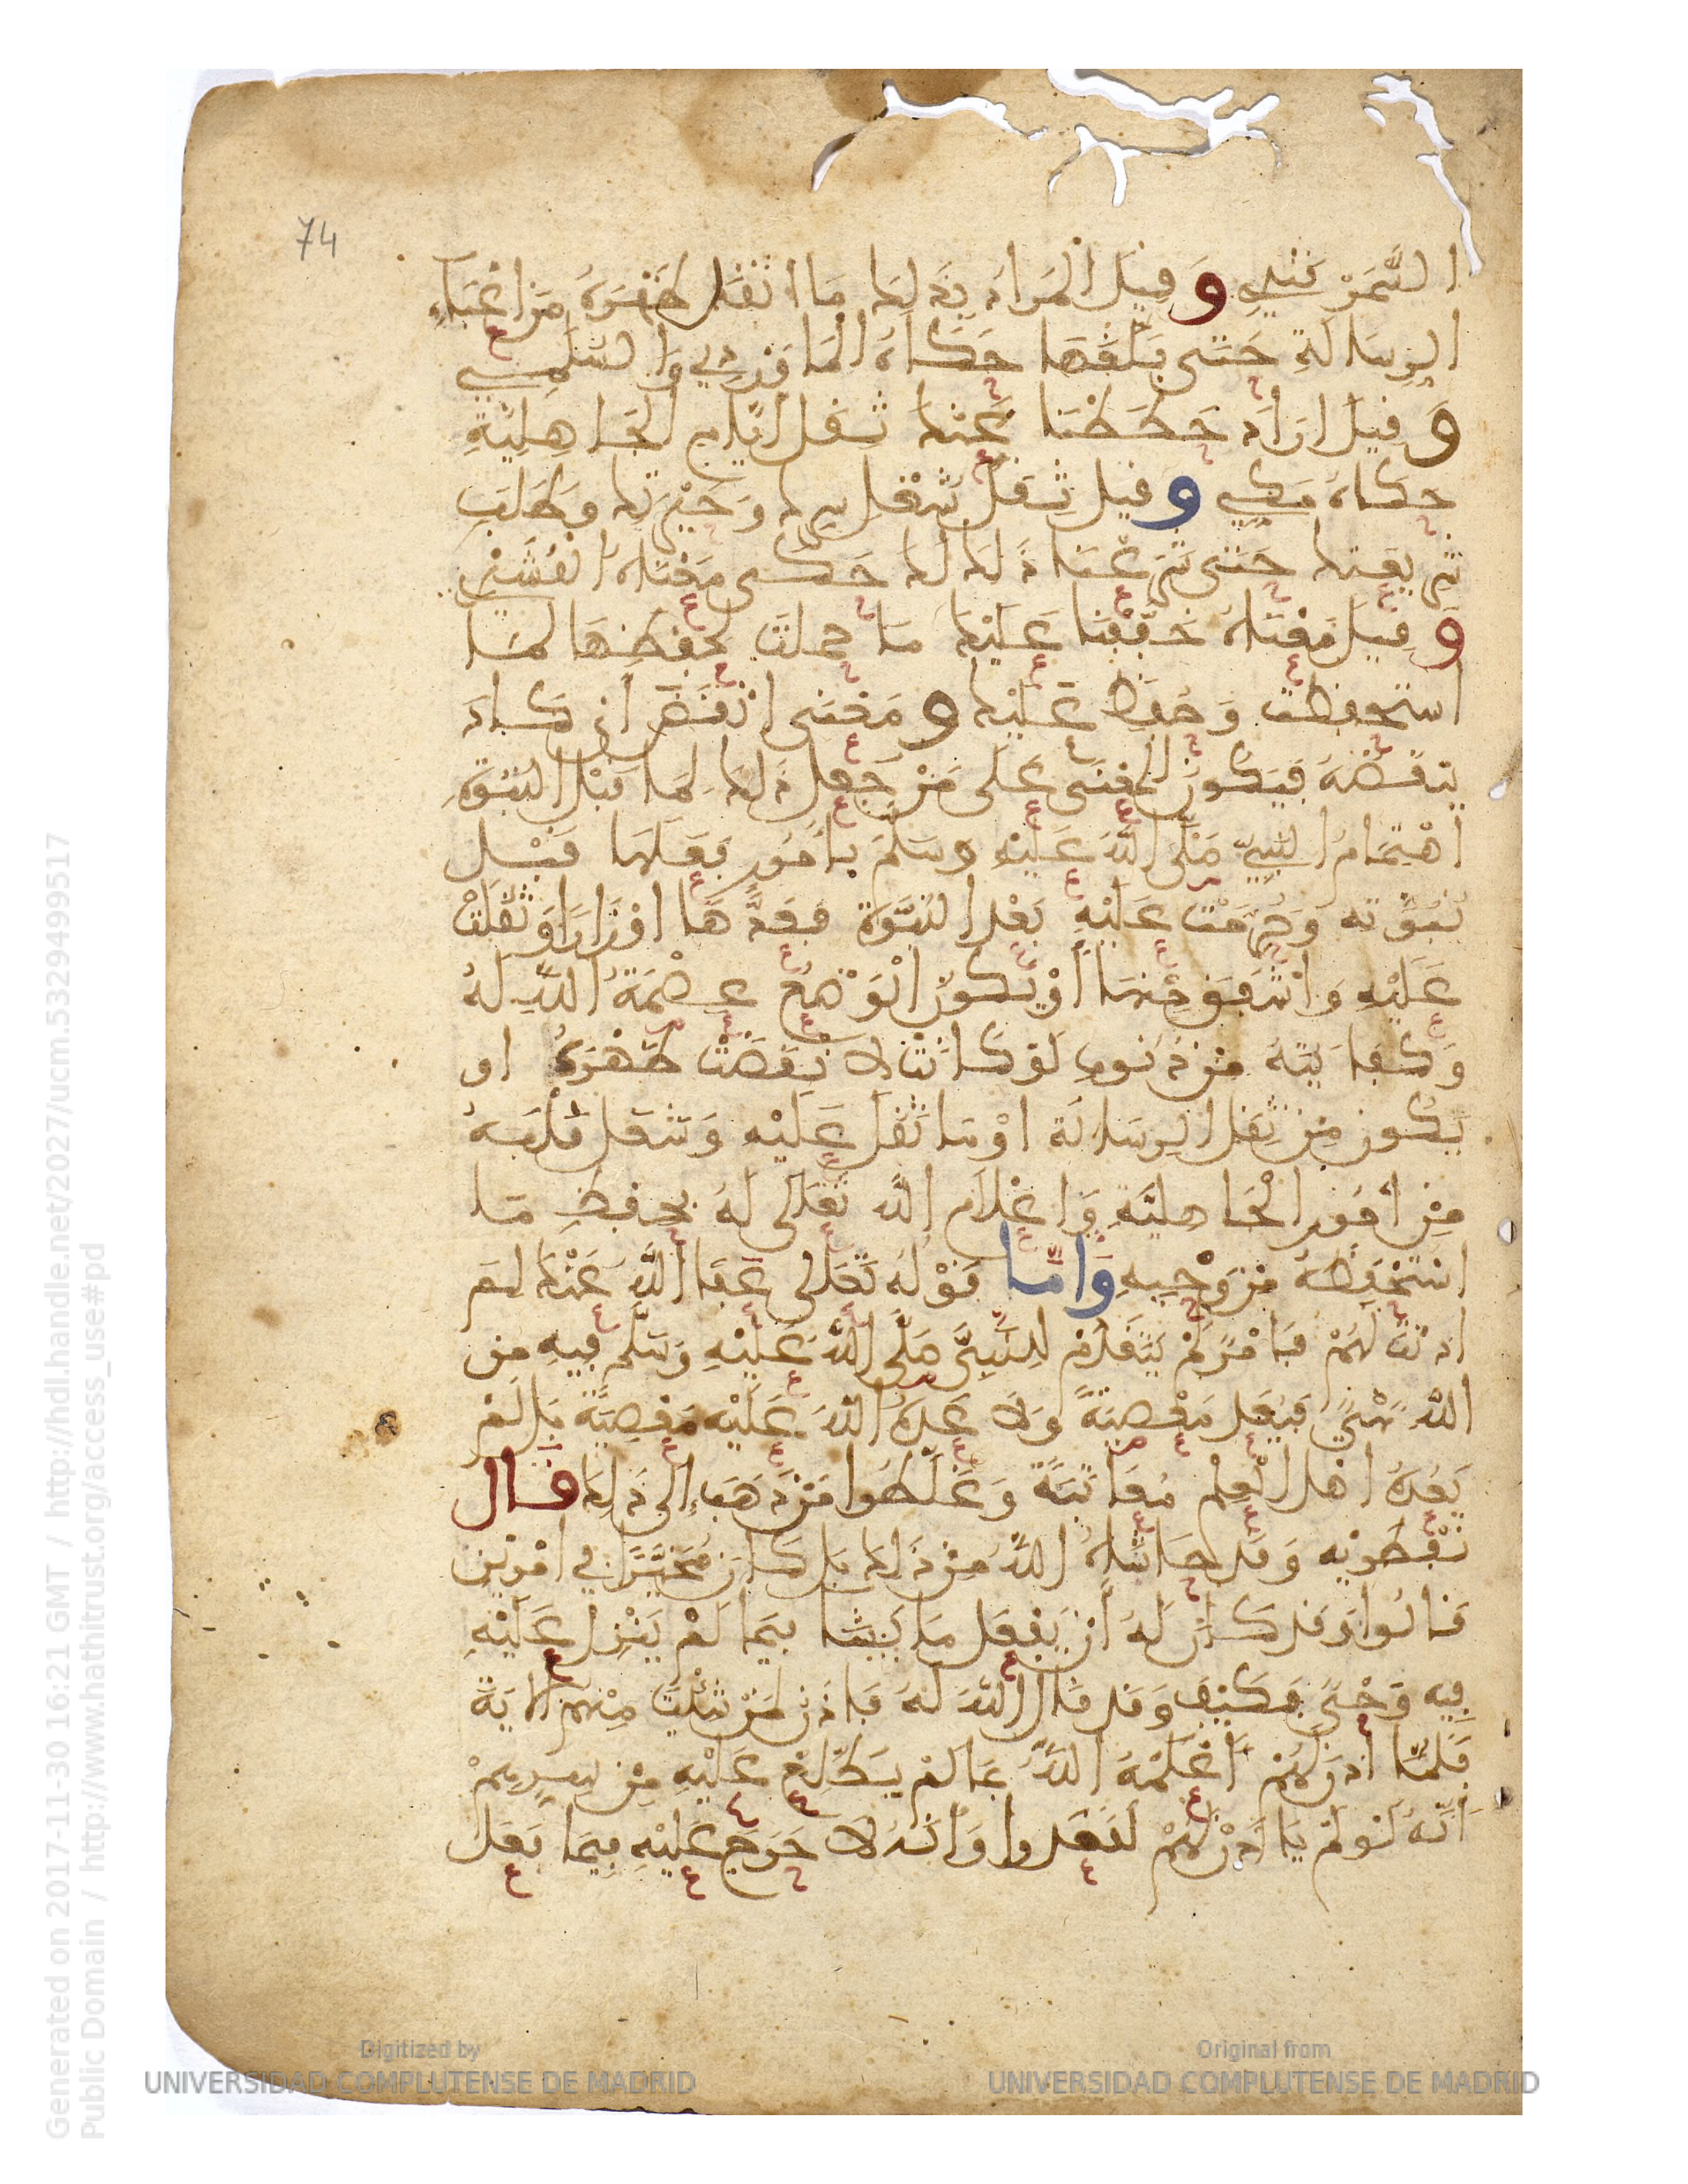 74
السمرقندي وقيل المراد بذلك ما اثقل ظهره من اعباء
الرسالة حتى بلغها حكاه الماوردي والسلمي
وقيل اراد حططنا عنك ثقل ايام الجاهلية
حكاه مكي وقيل ثقل شغل سرك وحيرتك وطلب
شريعتك حتى شرعنا ذلك لك حكى معناه القشيري
وقيل معناه خففنا عليك ما حملت بحفظنا لما
استحفظت وحفظ عليك ومعنى انقض اي كاد
ينقضه فيكون المعنى على من جعل ذلك لما قبل النبوة
اهتمام النبي صلى الله عليه وسلم بامور فعلها قبل
نبوته وحرمت عليه بعد النبوة فعدها اوزارا وثقلت
عليه واشفق منها او يكون الوضع عصمة الله له
وكفايته من ذنوب لو كانت لانقضت ظهره او
يكون من ثقل الرسالة او ما ثقل عليه وشغل قلبه
من امور الجاهلية واعلام الله تعالى له بحفظ ما
استحفظه من وحيه واما قوله تعالى عفا الله عنك لم
اذنت لهم فامر لم يتقدم للنبي صلى الله عليه وسلم فيه من
الله شيء فيعد معصية ولا عده الله عليه معصية بل لم
يعده اهل العلم معاتبة وغلطوا من ذهب الى ذلك قال
نفطويه وقد حاشاه الله من ذلك بل كان مخيرا في امرين
قالوا وقد كان له ان يفعل ما يشا فيما لم ينزل عليه
فيه وحي فكيف وقد قال الله له فاذن لمن شئت منهم الاية
فلما اذن لهم اعلمه الله بما لم يطلع عليه من سرهم
انه لو لم ياذن لهم لقعدوا وانه لا حرج عليه فيما فعل
Generated on 2017-11-30 16:21 GMT / http://hdl.handle.net/2027/ucm.5329499517
Public Domain / http://www.hathitrust.org/access_use#pd
Digitized by
UNIVERSIDAD COMPLUTENSE DE MADRID
Original from
UNIVERSIDAD COMPLUTENSE DE MADRID